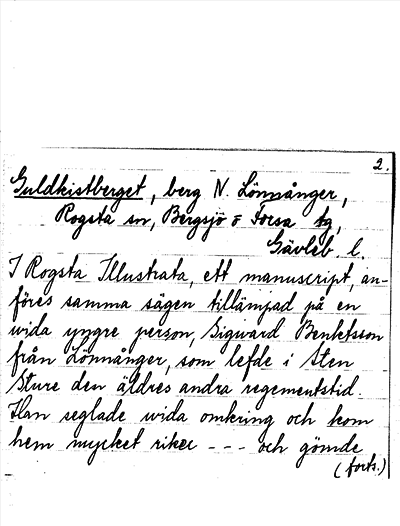 2.
Guldkistberget, berg N. Lönnånger,
Rogsta sn, Bergsjö o Forsa tg,
Gävleb. l.
I Rogsta Illustrata, ett manuscript, an-
föres samma sägen tillämpad på en
vida yngre person, Sigward Benketsson
från Lönnånger, som lefde i Sten
Sture den äldres andra regementstid.
Han seglade vida omkring och kom
hem mycket riker --- och gömde
(forts.)